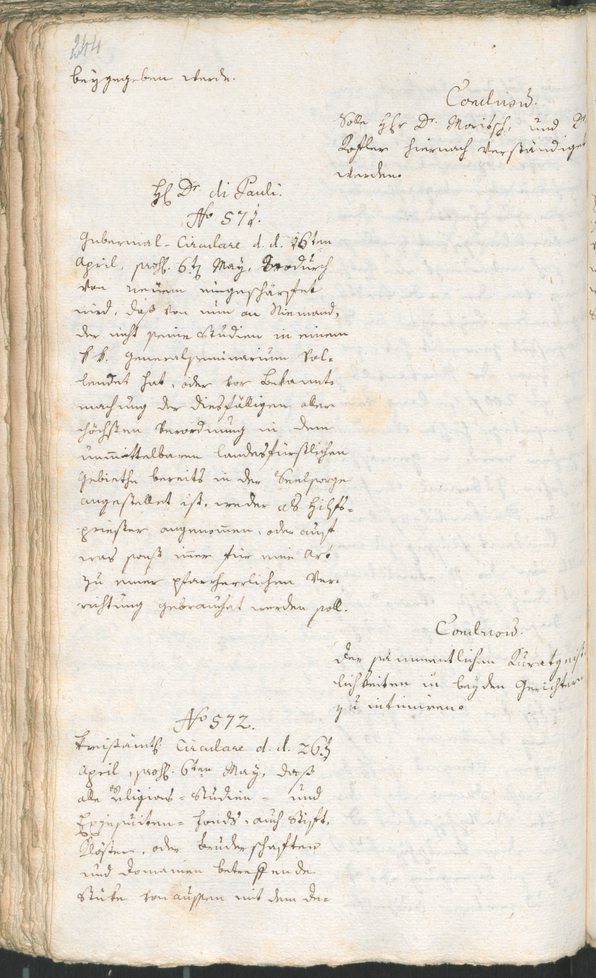 244
beygegeben werde.
Conclusum.
Solle HHr Dr. Moritsch, und Dr
Kofler hiernach verständiget
werden.
H Dr. di Pauli.
No 571.
Gubernal-Circulare d. d. 16ten
April, prœs. 6ten May, wodurch
von neuem eingeschärfet
wird, daß von nun an Niemand,
der nicht seine Studien in einem
k. k. Generalseminarium vol-
lendet hat, oder vor Bekannt-
machung der diesfälligen aller-
höchsten Verordnung in dem
unmittelbaren landesfürstlichen
Gebiethe bereits in der Seelsorge
angestellet ist, weder als Hilfs-
priester angenommen, oder auf
was sonst immer für eine Art
zu einer pfarrherrlichen Ver-
richtung gebrauchet werden soll.
Conclusum.
Der sammentlichen Kuratgeist-
lichkeiten in beyden Gerichtern
zu intimiren.
No 572.
Kreisamts Circulare d. d. 26ten
April, prœs. 6ten May, daß
alle Religions- Studien- und
Exjesuiten- Fonds, auch Stift,
Klöster, oder Bruderschaften
und Domainen betreffende
Stüke von aussen mit dem de-